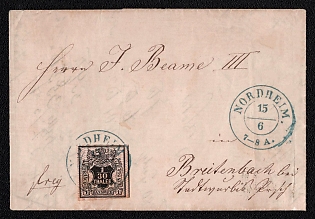 Herrn J. Beame III
NORDHEIM.
15
6
7-8 A.
in
RDHEIM
1
30
THALER
Breitenbach bei